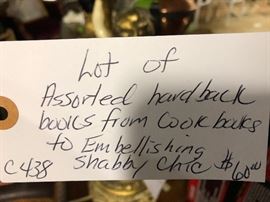 Lot of
Assorted hardback
books from Cookbooks
to Embellishing
C438 Shabby Chic $60.00